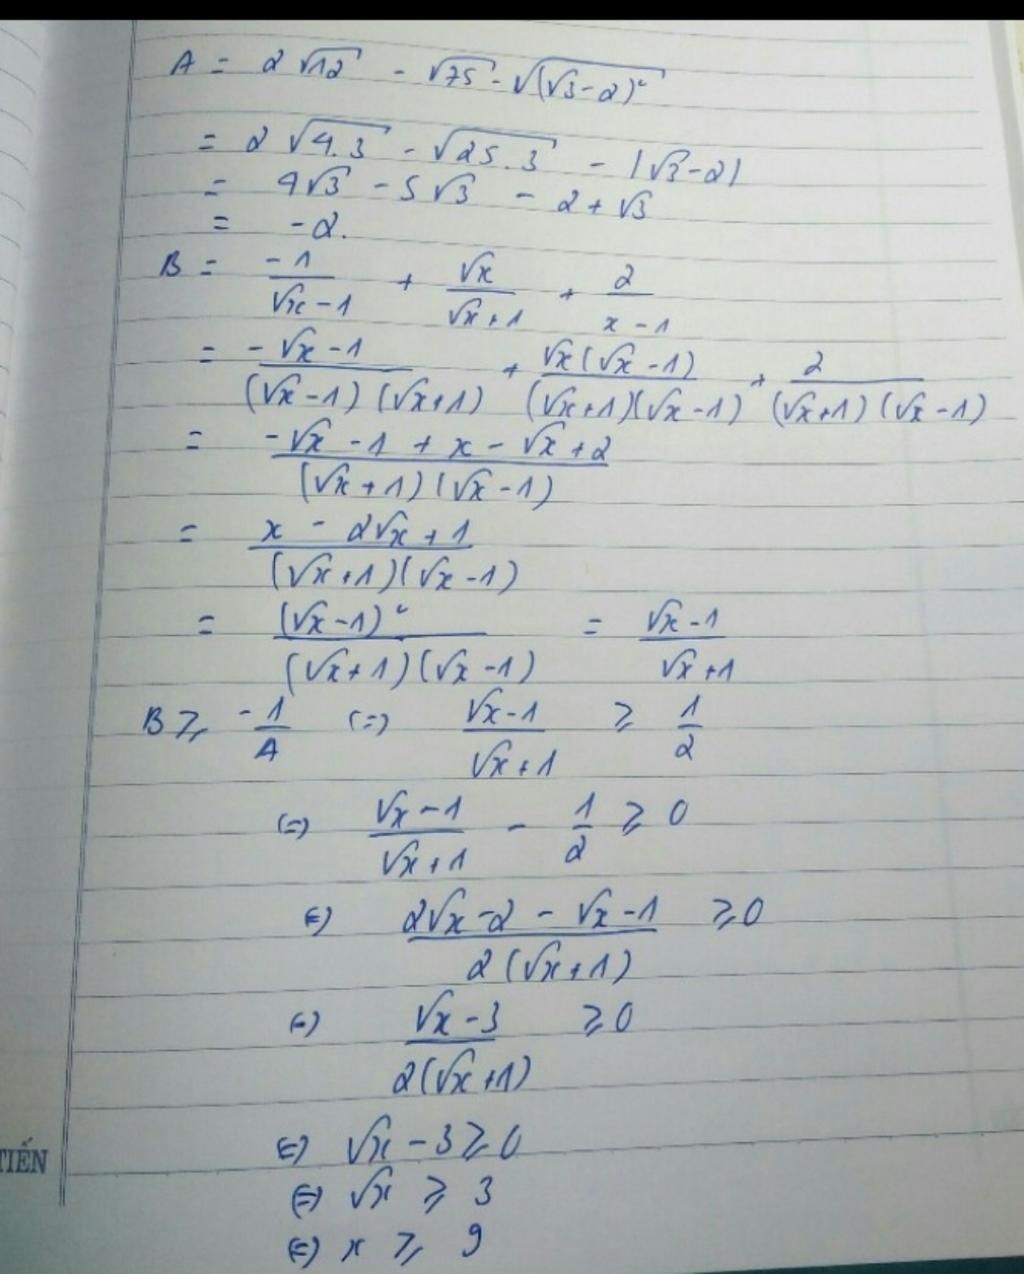 A = 2√12 - √75 - √(√3-2)²
= 2√4.3 - √25.3 - |√3-2|
= 4√3 - 5√3 - 2 + √3
= -2.
B = -1/(√x-1) + √x/(√x+1) + 2/(x-1)
= (-√x-1)/((√x-1)(√x+1)) + √x(√x-1)/((√x+1)(√x-1)) + 2/((√x+1)(√x-1))
= (-√x-1+x-√x+2)/((√x+1)(√x-1))
= (x-2√x+1)/((√x+1)(√x-1))
= (√x-1)²/((√x+1)(√x-1)) = (√x-1)/(√x+1)
B ≥ -1/A (=) (√x-1)/(√x+1) ≥ 1/2
(=) (√x-1)/(√x+1) - 1/2 ≥ 0
(=) (2√x-2-√x-1)/(2(√x+1)) ≥ 0
(=) (√x-3)/(2(√x+1)) ≥ 0
(=) √x-3 ≥ 0
TIẾN
(=) √x ≥ 3
(=) x ≥ 9